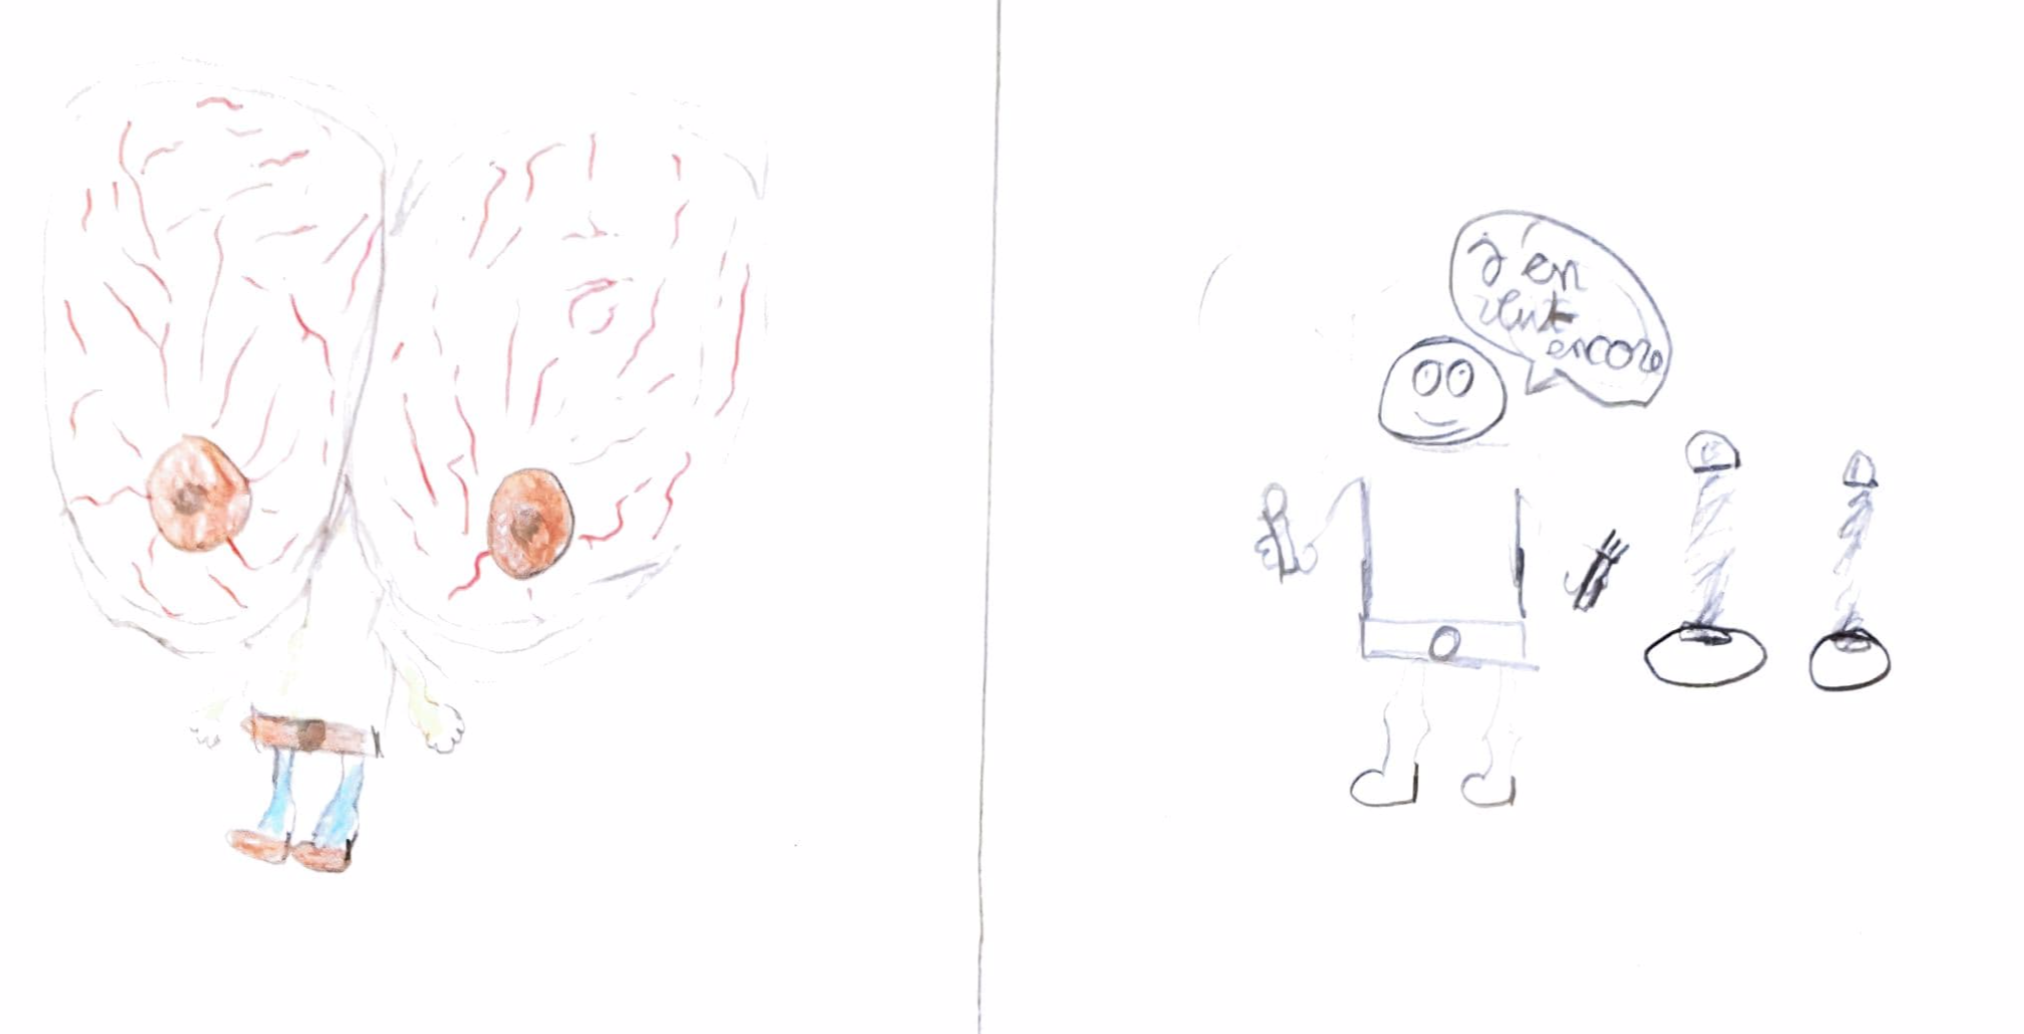 J en
veut
encore